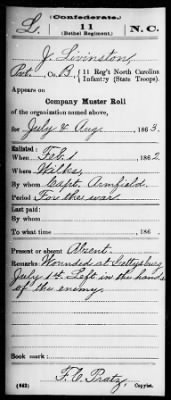 (Confederate.)
L. 11 N.C.
(Bethel Regiment.)
J. Livinston,
Pvt., Co. B, 11 Reg't North Carolina Infantry (State Troops).
Appears on
Company Muster Roll
of the organization named above,
for July & Aug, 1863.
Enlisted:
When Feb. 1, 1862
Where Wilkes,
By whom Capt. Armfield.
Period For the war.
Last paid:
By whom
To what time , 186 .
Present or absent Absent.
Remarks: Wounded at Gettysburg
July 1st. Left in the hands
of the enemy.
Book mark:
(642) F. C. Pratz, Copyist.